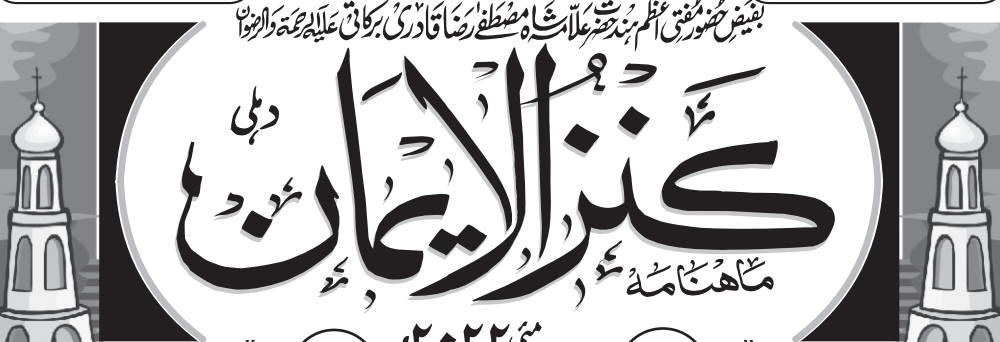 بفیض حضور مفتی اعظم ہند حضرت علامہ شاہ مصطفےٰ رضا قادری برکاتی علیہ الرحمۃ والرضوان
ماھنامہ
کنزالایمان
دہلی
مئی ۲۰۲۲ء